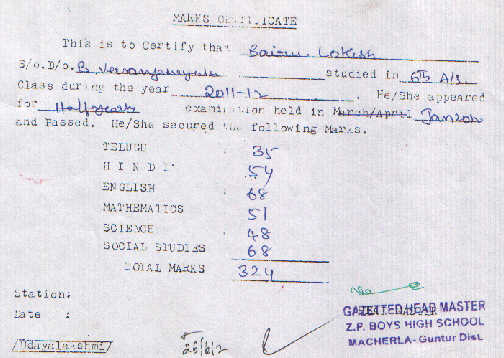 MARKS CERTIFICATE
This is to Certify that Bairu Lokesh
S/o.D/o. B. Veeranjaneyulu studied in 6th A/S
Class during the year 2011-12. He/She appeared
for Half yearly examination held in March/April Jan 2012
and Passed. He/She secured the following Marks.
TELUGU : 35
HINDI : 54
ENGLISH : 68
MATHEMATICS : 51
SCIENCE : 48
SOCIAL STUDIES : 68
TOTAL MARKS 324
Station:
Date :
GAZETTED HEAD MASTER
Z.P. BOYS HIGH SCHOOL
MACHERLA - Guntur Dist.
/Udayalakshmi/